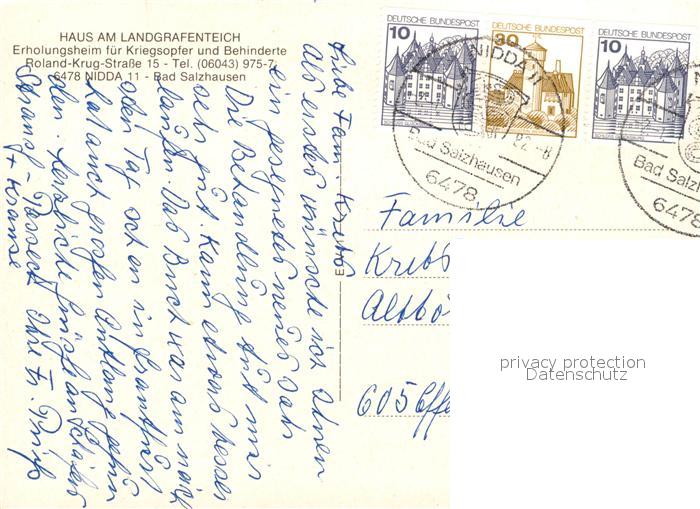 HAUS AM LANDGRAFENTEICH
Erholungsheim für Kriegsopfer und Behinderte
Roland-Krug-Straße 15 - Tel. (06043) 975-7
6478 NIDDA 11 - Bad Salzhausen
DEUTSCHE BUNDESPOST
10
DEUTSCHE BUNDESPOST
30
DEUTSCHE BUNDESPOST
10
NIDDA 11
82 - 8
Bad Salzhausen
6478
Bad Salz
6478
Familie
Krebs
Altbö
605 Offe
privacy protection
Datenschutz
Liebe Fam. Krebs
als erstes wünsche ich Ihnen
ein gesegnetes neues Jahr
Die Behandlung tut mir
sehr gut. Kann etwas besser
laufen. Das Buch war am
den Tag schon in Frankfurt
hat auch großen Anklang
Herzliche Grüße
Ihre Fr.